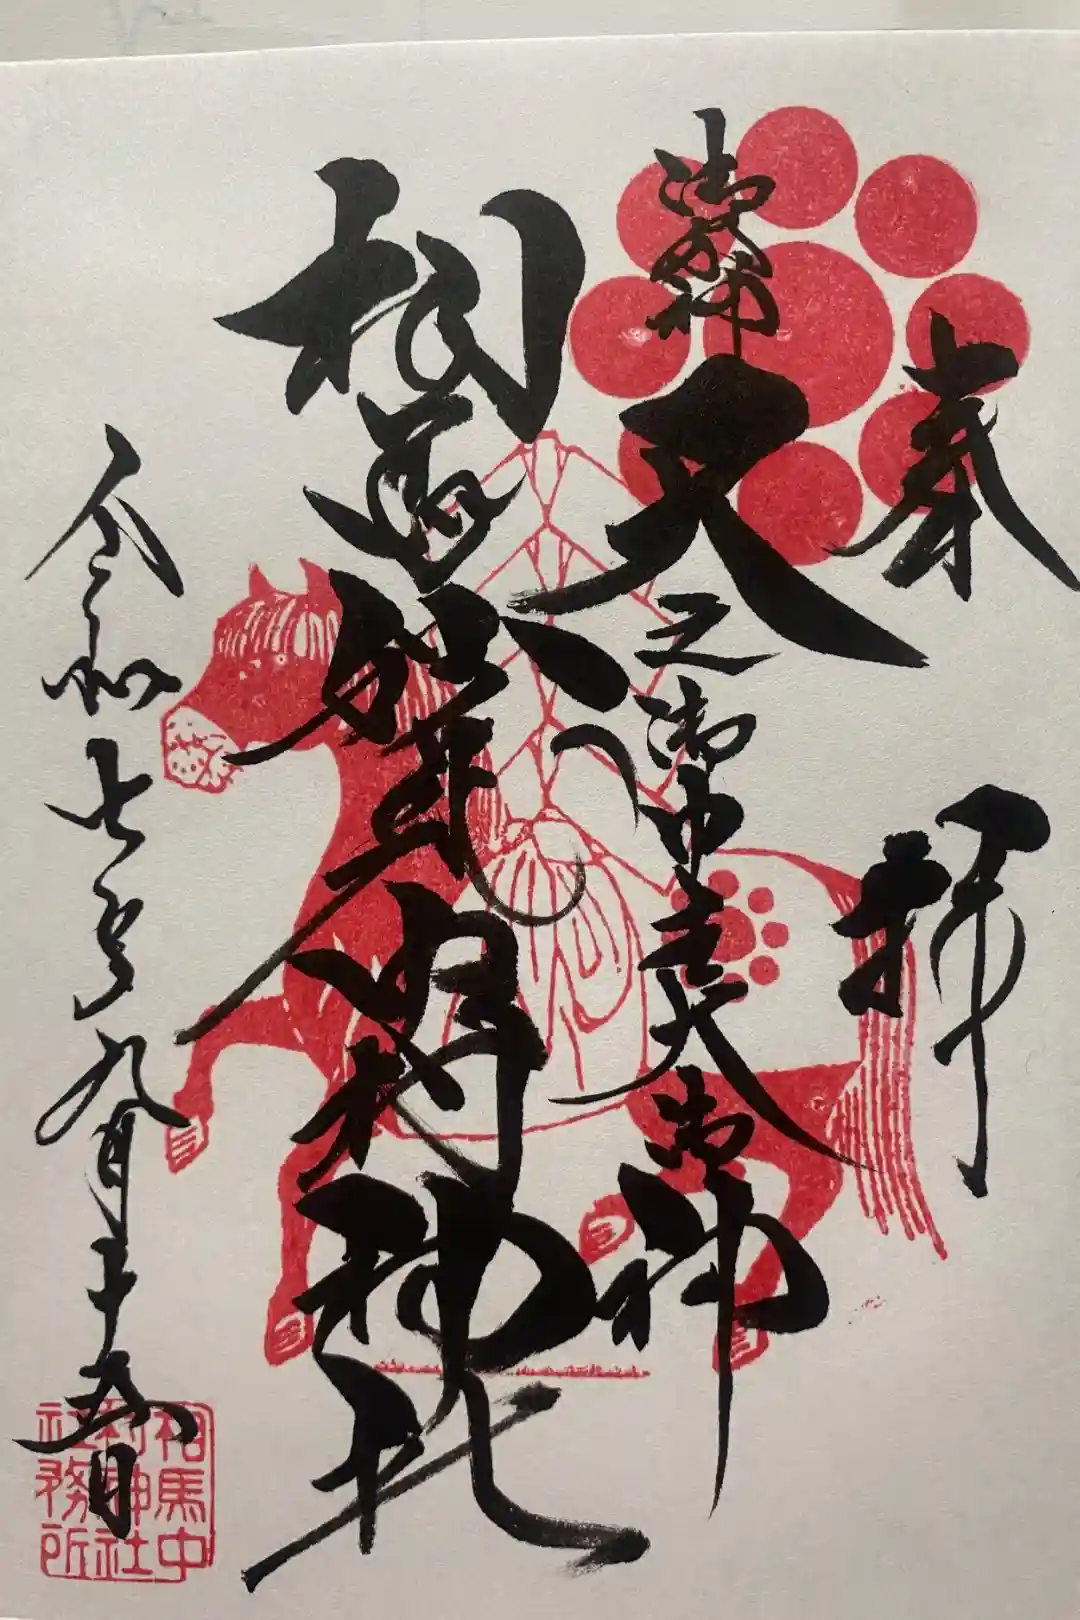 奉拝
御祭神 天之御中主大御神
相馬中村神社
令和七年九月十五日
相馬中
村神社
社務所